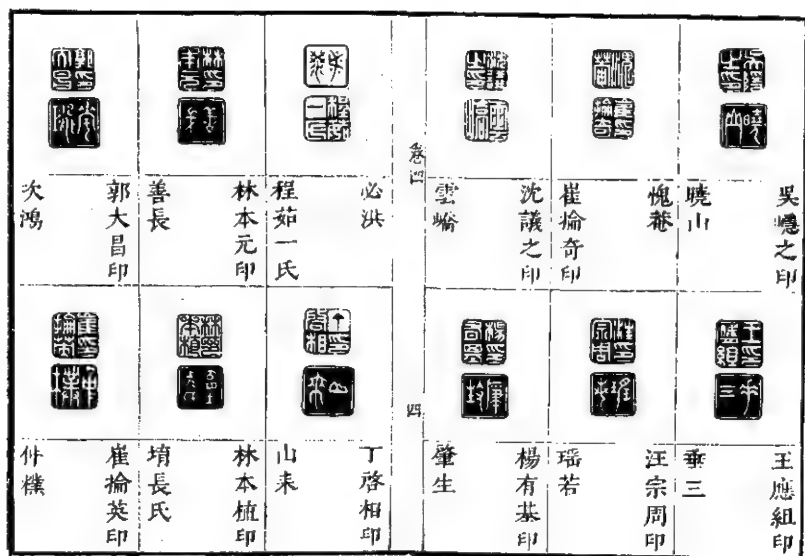 吳之印
曉山
愧菴
崔掄奇印
沈議之印
雲嶠
王應組印
垂三
汪宗周印
瑶若
楊有基印
肇生
卷四
四
必洪
程茹一氏
林本元印
善長
郭大昌印
次鴻
丁啓相印
山来
林本印
堉長氏
崔掄英印
仲樸